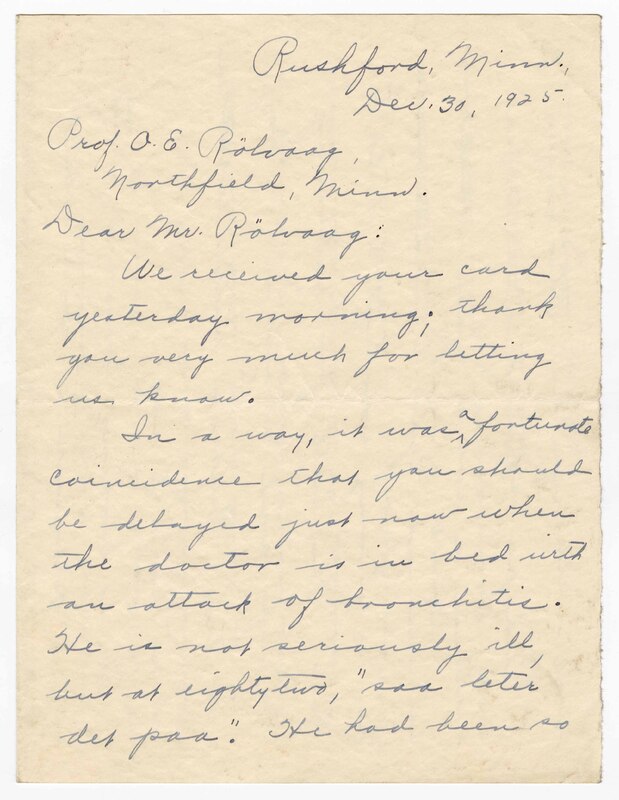 Rushford, Minn.,
Dec. 30, 1925.
Prof. O. E. Rölvaag,
Northfield, Minn.
Dear Mr. Rölvaag:
We received your card
yesterday morning; thank
you very much for letting
us know.
In a way, it was a fortunate
coincidence that you should
be delayed just now when
the doctor is in bed with
an attack of bronchitis.
He is not seriously ill,
but at eightytwo, "saa leter
det paa". He had been so